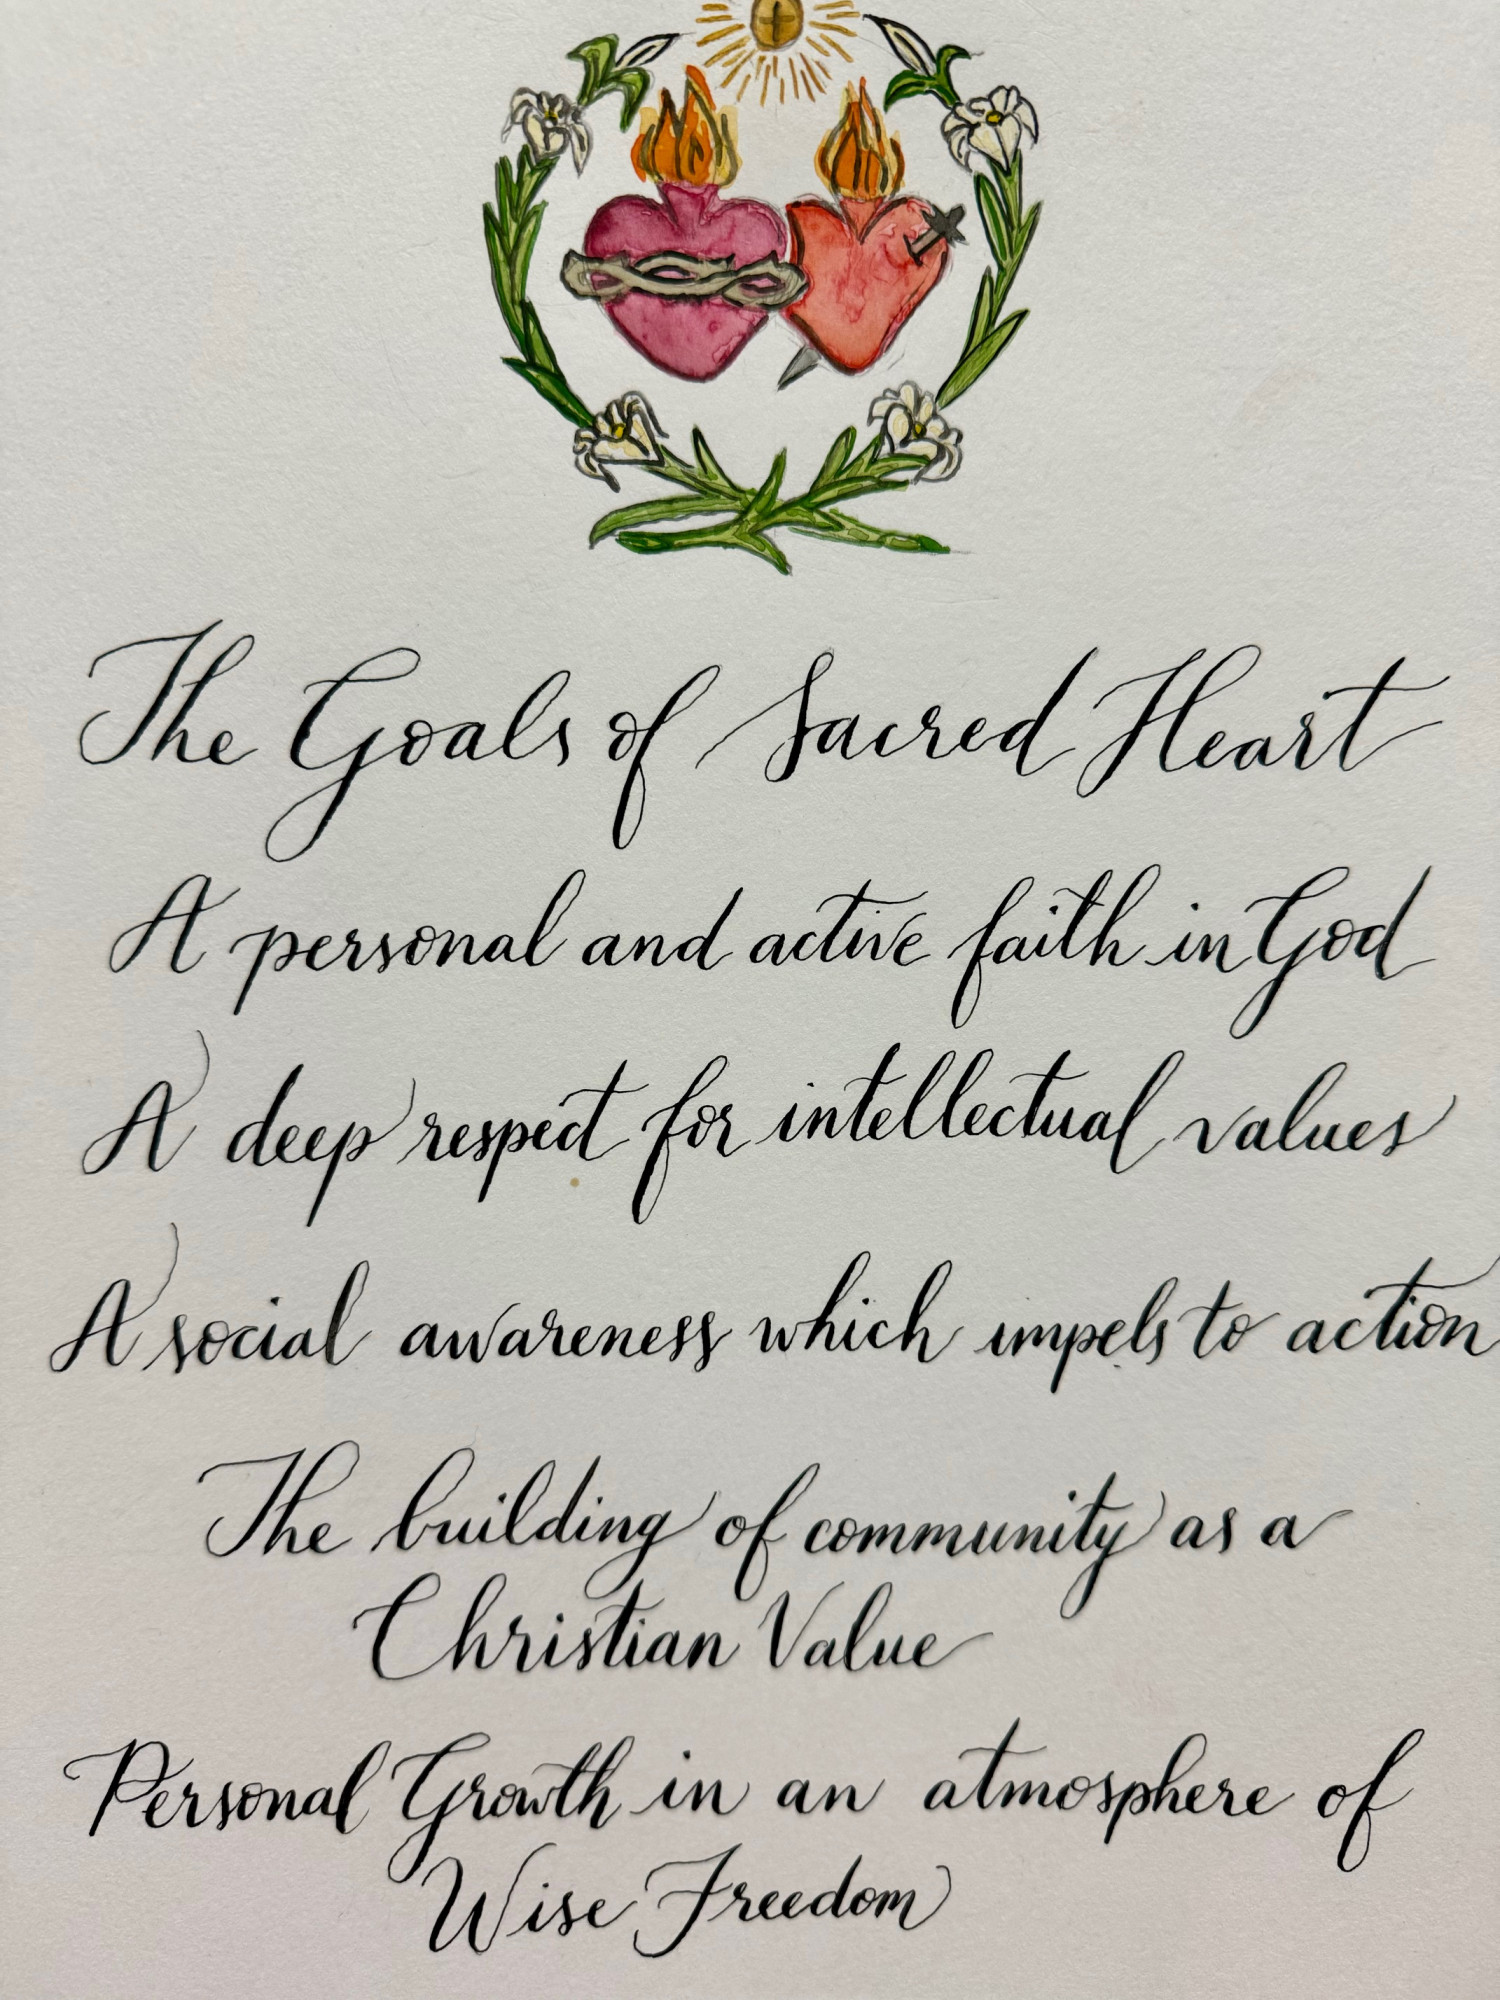 The Goals of Sacred Heart
A personal and active faith in God
A deep respect for intellectual values
A social awareness which impels to action
The building of community as a
Christian Value
Personal Growth in an atmosphere of
Wise Freedom